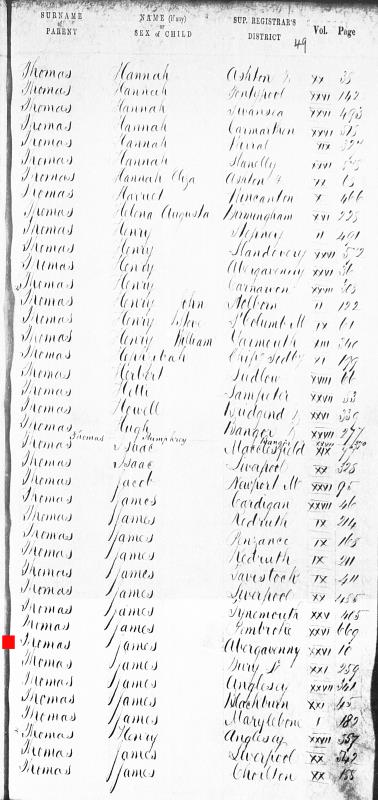 SURNAME OF PARENT NAME (if any) or SEX OF CHILD SUP. REGISTRAR'S DISTRICT Vol. Page
49
Thomas Hannah Ashton XX 38
Thomas Hannah Pontypool XXVI 142
Thomas Hannah Swansea XXVI 493
Thomas Hannah Carmarthen XXVI 373
Thomas Hannah Wirral XIX
Thomas Hannah Llanelly XXVI
Thomas Hannah Eliza Ashton XX 63
Thomas Harriet Wincanton X 466
Thomas Helena Augusta Birmingham XVI 228
Thomas Henry Stepney II 401
Thomas Henry Llandovery XXVI
Thomas Henry Abergavenny XXVI 36
Thomas Henry Carnarvon XXVII 303
Thomas Henry John Holborn II 122
Thomas Henry St Columb M IX 61
Thomas Henry William Yarmouth XIII 340
Thomas Hephzibah Chip. Sodby XI 179
Thomas Herbert Ludlow XVIII 66
Thomas Hetti Lampeter XXVII 33
Thomas Howell Bridgend XXVI 339
Thomas Hugh Bangor XXVII 277
Thomas Humphrey Bangor XXVII
Thomas Isaac Macclesfield XIX
Thomas Isaac Liverpool XX 328
Thomas Jacob Newport M XXVI 95
Thomas James Cardigan XXVII 46
Thomas James Redruth IX 214
Thomas James Penzance IX 168
Thomas James Redruth IX 211
Thomas James Tavistock IX 411
Thomas James Liverpool XX
Thomas James Tynemouth XXV 405
Thomas James Pembroke XXVI 669
Thomas James Abergavenny XXVI 10
Thomas James Bury XXI 259
Thomas James Anglesey XXVII 341
Thomas James Blackburn XXI 45
Thomas James Marylebone I 182
Thomas Henry Anglesey XXVII 357
Thomas James Liverpool XX 342
Thomas James Chorlton XX 155